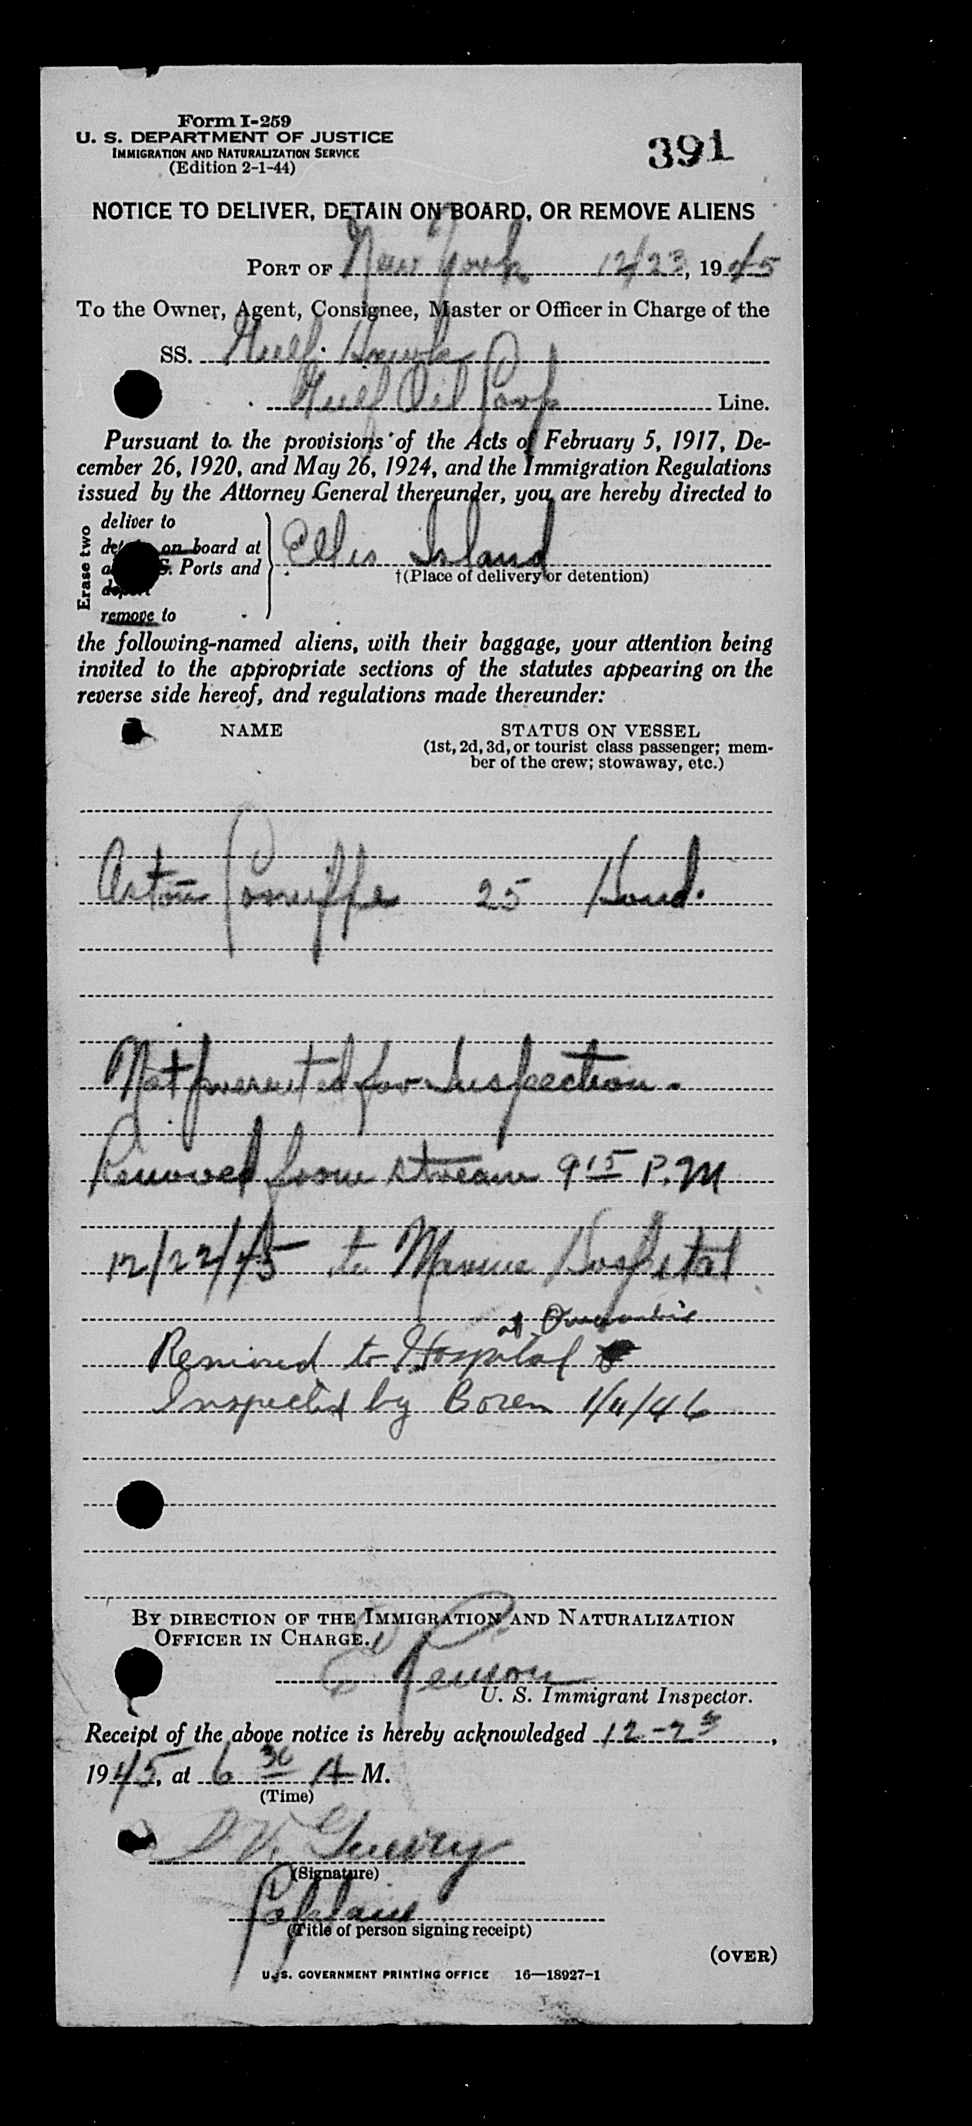 Form I-259
U. S. DEPARTMENT OF JUSTICE
IMMIGRATION AND NATURALIZATION SERVICE
(Edition 2-1-44)
391
NOTICE TO DELIVER, DETAIN ON BOARD, OR REMOVE ALIENS
PORT OF New York 12/23, 1945
To the Owner, Agent, Consignee, Master or Officer in Charge of the
SS. Gulf Hawk
Gulf Oil Corp Line.
Pursuant to the provisions of the Acts of February 5, 1917, De-
cember 26, 1920, and May 26, 1924, and the Immigration Regulations
issued by the Attorney General thereunder, you are hereby directed to
Erase two
deliver to
on board at
Ports and
remove to
Ellis Island
†(Place of delivery or detention)
the following-named aliens, with their baggage, your attention being
invited to the appropriate sections of the statutes appearing on the
reverse side hereof, and regulations made thereunder:
NAME STATUS ON VESSEL
(1st, 2d, 3d, or tourist class passenger; mem-
ber of the crew; stowaway, etc.)
25 Hond.
Not presented for Inspection.
Removed from stream 9 15 P.M
12/22/45 to Marine Hospital
at
Removed to Hospital
Inspected by Boren 1/11/46
BY DIRECTION OF THE IMMIGRATION AND NATURALIZATION
OFFICER IN CHARGE.
U. S. Immigrant Inspector.
Receipt of the above notice is hereby acknowledged 12-23,
1945, at 6 30 A M.
(Time)
(Signature)
Captain
(Title of person signing receipt)
(OVER)
U. S. GOVERNMENT PRINTING OFFICE 16—18927-1